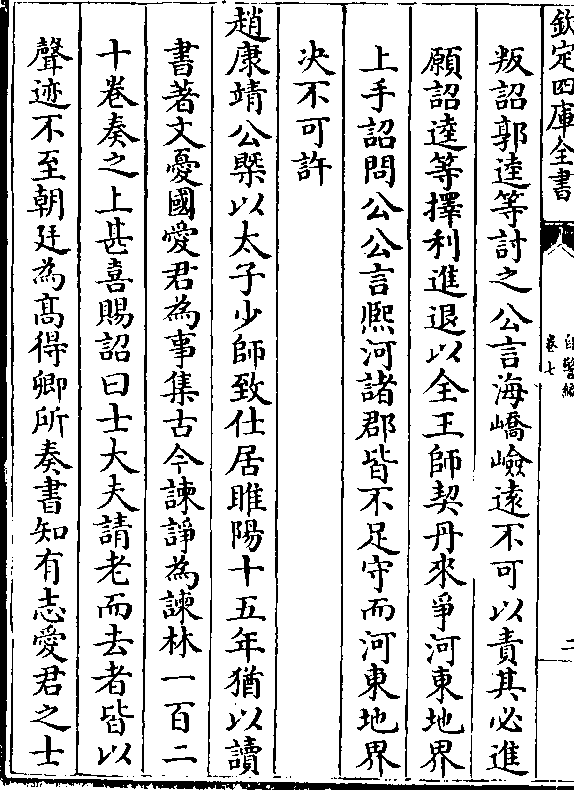 欽定四庫全書
自警編
卷七
二
叛詔郭逵等討之公言海嶠嶮遠不可以責其必進
願詔逵等擇利進退以全王師契丹來爭河東地界
上手詔問公公言熈河諸郡皆不足守而河東地界
决不可許
趙康靖公槩以太子少師致仕居睢陽十五年猶以讀
書著文憂國愛君為事集古今諫諍為諫林一百二
十卷奏之上甚喜賜詔曰士大夫請老而去者皆以
聲迹不至朝廷為髙得卿所奏書知有志愛君之士